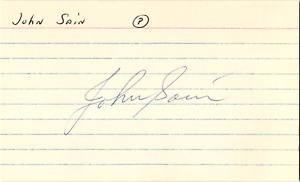 JOHN SAIN Ⓟ
John Sain